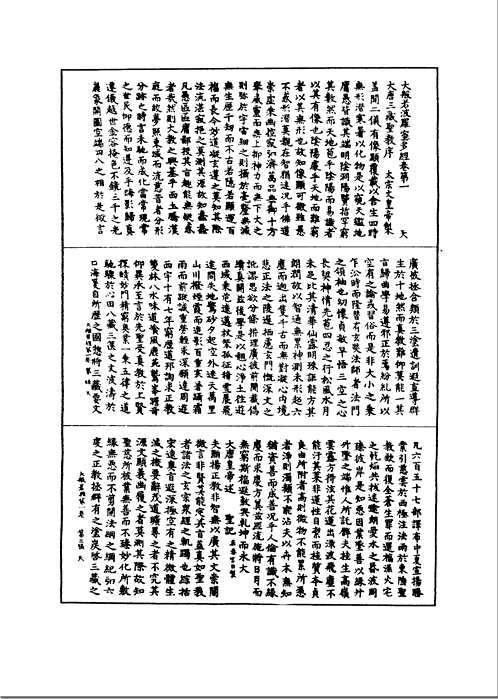 大般若波羅蜜多經卷第一 天
大唐三藏聖教序 太宗文皇帝製
蓋聞二儀有像顯覆載以含生四時
無形潛寒暑以化物是以窺天鑑地
庸愚皆識其端明陰洞陽賢哲罕窮
其數然而天地苞乎陰陽而易識者
以其有像也陰陽處乎天地而難窮
者以其無形也故知像顯可徵雖愚
不惑形潛莫覩在智猶迷况乎佛道
崇虛乘幽控寂弘濟萬品典御十方
舉威靈而無上抑神力而無下大之
則弥於宇宙細之則攝於毫釐無滅
無生歷千劫而不古若隱若顯運百
福而長今妙道凝玄遵之莫知其際
法流湛寂挹之莫測其源故知蠢蠢
凡愚區區庸鄙投其旨趣能無疑惑
者哉然則大教之興基乎西土騰漢
庭而皎夢照東域而流慈昔者分形
分跡之時言未馳而成化當常現常
之世民仰德而知遵及乎晦影歸真
遷儀越世金容掩色不鏡三千之光
麗象開圖空端四八之相於是微言
廣被拯含類於三塗遺訓遐宣導群
生於十地然而真教難仰莫能一其
旨歸曲學易遵邪正於焉紛糺所以
空有之論或習俗而是非大小之乘
乍沿時而隆替有玄奘法師者法門
之領袖也幼懷貞敏早悟三空之心
長契神情先苞四忍之行松風水月
未足比其清華仙露明珠詎能方其
朗潤故以智通無累神測未形超六
塵而迥出隻千古而無對凝心內境
悲正法之陵遲栖慮玄門慨深文之
訛謬思欲分條析理廣彼前聞截偽
續真開茲後學是以翹心淨土往遊
西域乘危遠邁杖策孤征積雪晨飛
途間失地驚砂夕起空外迷天萬里
山川撥煙霞而進影百重寒暑躡霜
雨而前蹤誠重勞輕求深願達周遊
西宇十有七年窮歷道邦詢求正教
雙林八水味道飡風鹿菀鷲峯瞻奇
仰異承至言於先聖受真教於上賢
探賾妙門精窮奧業一乘五律之道
馳驟於心田八藏三篋之文波濤於
口海爰自所歷之國總將三藏要文
凡六百五十七部譯布中夏宣揚勝
業引慈雲於西極注法雨於東陲聖
教缺而復全蒼生罪而還福濕火宅
之乾燄共拔迷途朗愛水之昏波同
臻彼岸是知惡因業墜善以緣昇
昇墜之端惟人所託譬夫桂生高嶺
雲露方得泫其花蓮出淥波飛塵不
能污其葉非蓮性自潔而桂質本貞
良由所附者高則微物不能累所憑
者淨則濁類不能沾夫以卉木無知
猶資善而成善況乎人倫有識不緣
慶而求慶方冀茲經流施將日月而
無窮斯福遐敷與乾坤而永大
大唐皇帝述 聖記 在春宮日製
夫顯揚正教非智無以廣其文崇闡
微言非賢莫能定其旨蓋真如聖教
者諸法之玄宗衆經之軌躅也綜括
宏遠奧旨遐深極空有之精微體生
滅之機要辭茂道曠尋之者不究其
源文顯義幽履之者莫測其際故知
聖慈所被業無善而不臻妙化所敷
緣無惡而不翦開法網之綱紀弘六
度之正教拯群有之塗炭啓三藏之